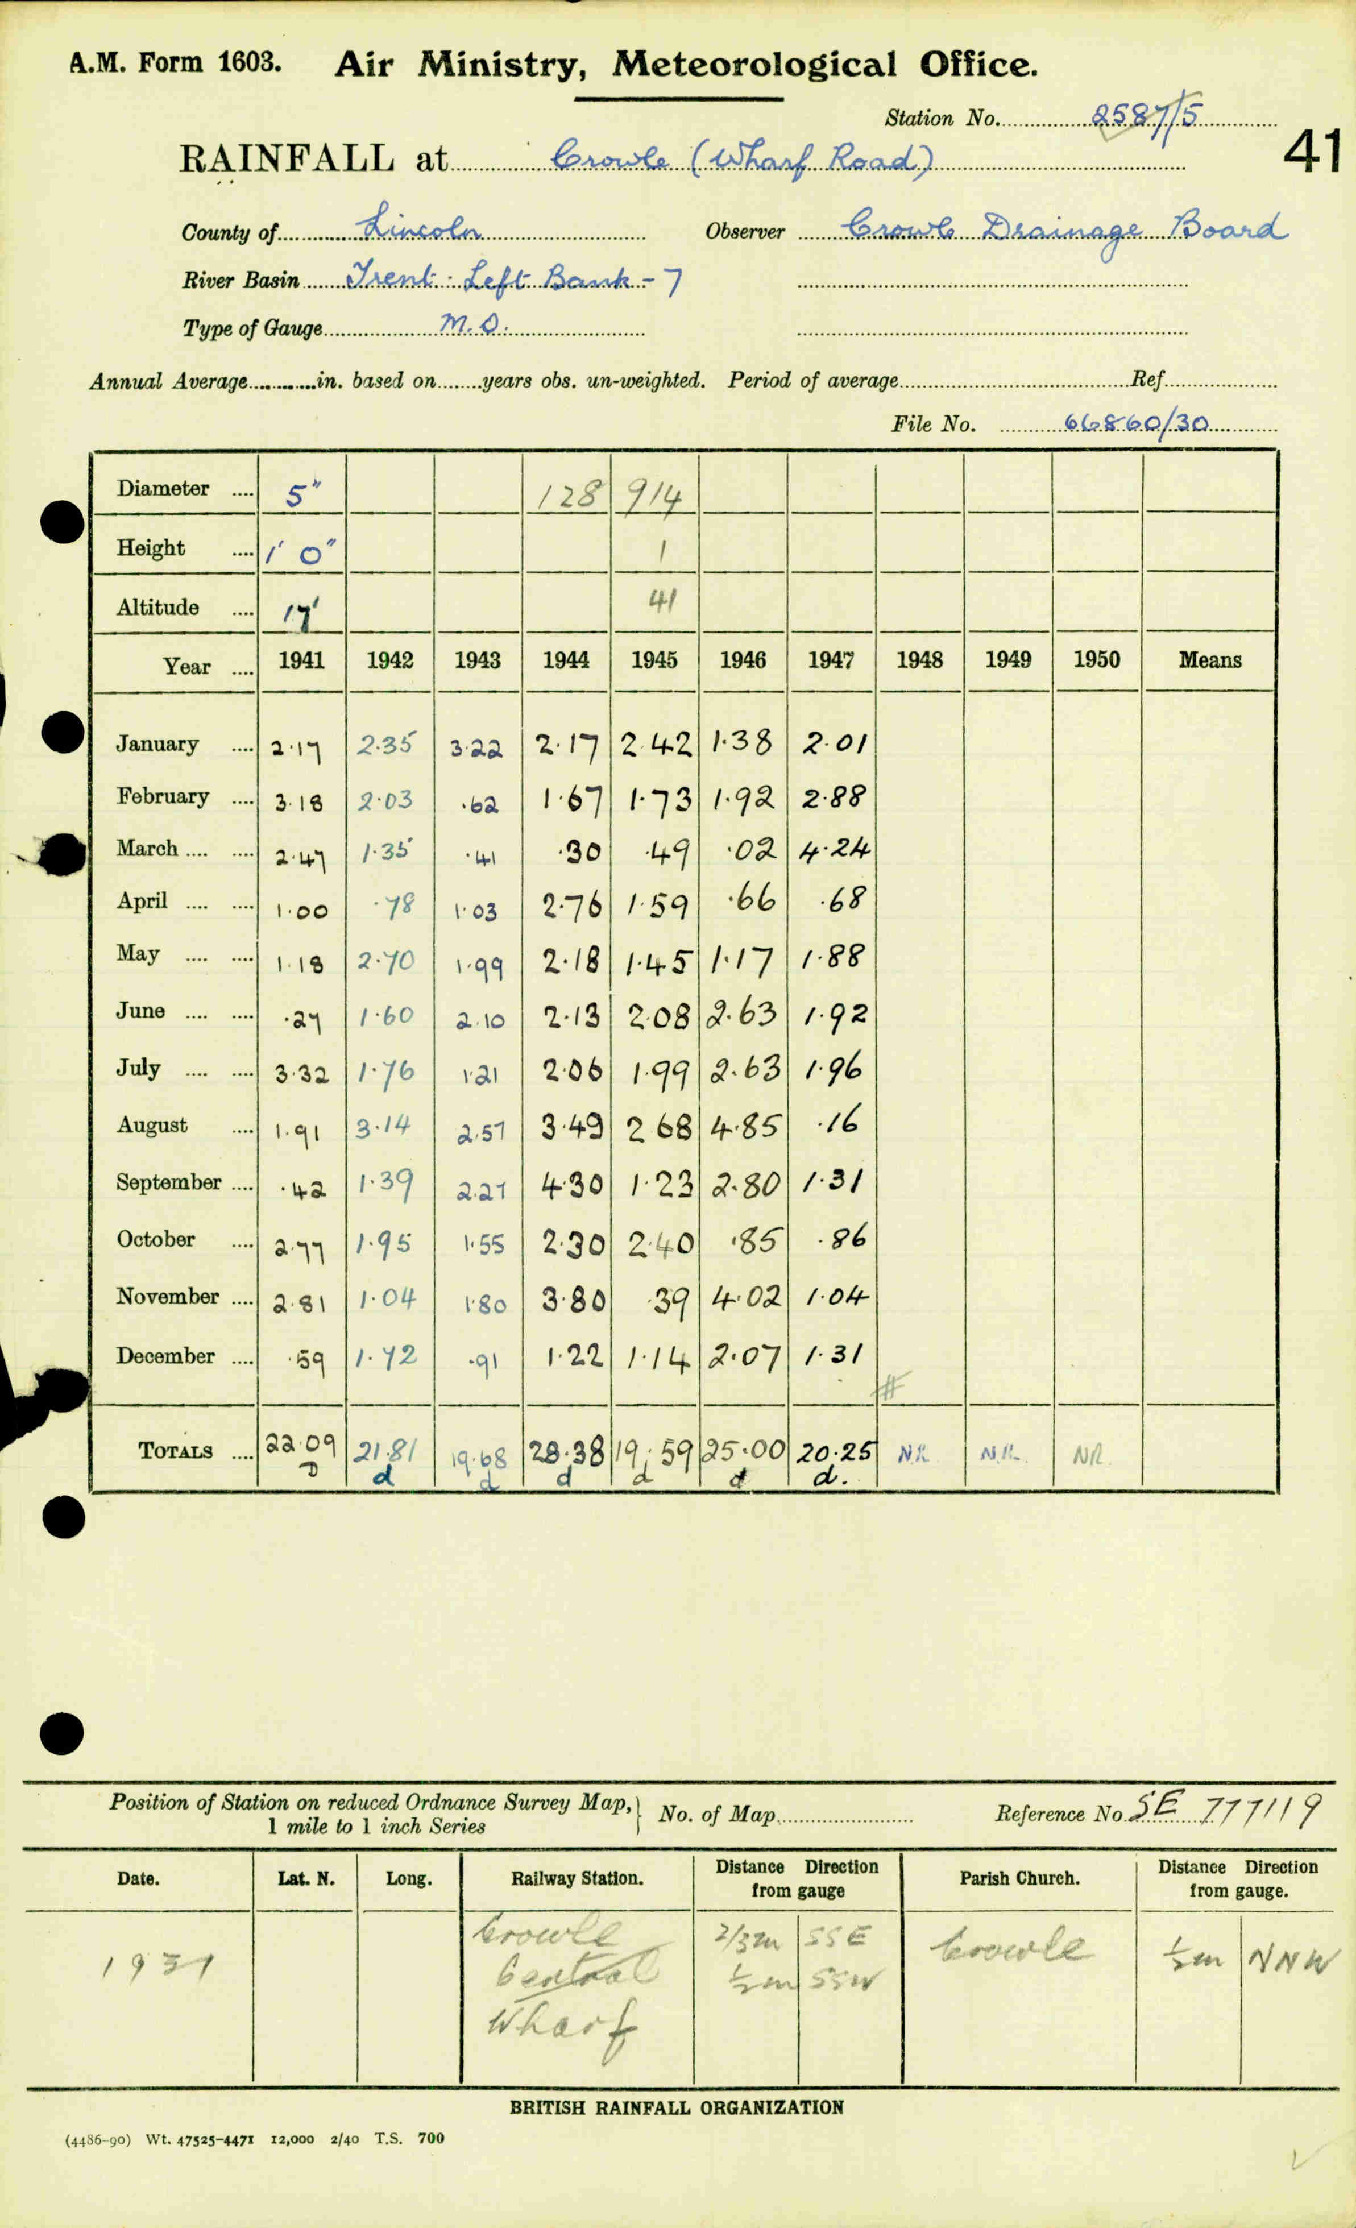 A.M. Form 1603. Air Ministry, Meteorological Office.
Station No. 2587/5
41
RAINFALL at Crowle (Wharf Road)
County of Lincoln Observer Crowle Drainage Board
River Basin Trent: Left Bank - 7
Type of Gauge M.O.
Annual Average in. based on years obs. un-weighted. Period of average Ref.
File No. 66860/30
Diameter 5" 128 914
Height 1' 0" 1
Altitude 17' 41
Year 1941 1942 1943 1944 1945 1946 1947 1948 1949 1950 Means
January 2.17 2.35 3.22 2.17 2.42 1.38 2.01
February 3.18 2.03 .62 1.67 1.73 1.92 2.88
March 2.47 1.35 .41 .30 .49 .02 4.24
April 1.00 .78 1.03 2.76 1.59 .66 .68
May 1.18 2.70 1.99 2.18 1.45 1.17 1.88
June .27 1.60 2.10 2.13 2.08 2.63 1.92
July 3.32 1.76 1.21 2.06 1.99 2.63 1.96
August 1.91 3.14 2.57 3.49 2.68 4.85 .16
September .42 1.39 2.27 4.30 1.23 2.80 1.31
October 2.77 1.95 1.55 2.30 2.40 .85 .86
November 2.81 1.04 1.80 3.80 .39 4.02 1.04
December .59 1.72 .91 1.22 1.14 2.07 1.31
#
TOTALS 22.09 21.81 19.68 28.38 19.59 25.00 20.25 NR NR NR
D d d d d d d.
Position of Station on reduced Ordnance Survey Map, No. of Map Reference No. SE 777119
1 mile to 1 inch Series
Date. Lat. N. Long. Railway Station. Distance Direction from gauge Parish Church. Distance Direction from gauge.
1937 Crowle 2/3m SSE Crowle 1/2m NNW
Central 1/2m SSW
Wharf
BRITISH RAINFALL ORGANIZATION
(4486-90) Wt. 47525-4471 12,000 2/40 T.S. 700